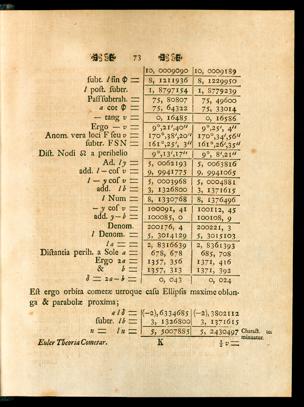 73
10, 0009090 | 10, 0009189
subt. l sin Φ = 8, 1211936 | 8, 1229950
l post. subtr. 1, 8797154 | 1, 8779239
Pass subtrah. = 75, 80807 | 75, 49600
a cot Φ = 75, 64322 | 75, 33014
— tang v = 0, 16485 | 0, 16586
Ergo — v = 9°, 21', 40" | 9°, 25', 4"
Anom. vera loci F seu v = 170°, 38', 20" | 170°, 34', 56"
subtr. FSN = 161°, 25', 3" | 161°, 26', 35"
Dist. Nodi ☊ a perihelio 9°, 13', 17" | 9°, 8', 21"
Ad. l y = 5, 0062193 | 5, 0063816
add. l — cos v = 9, 9941775 | 9, 9941065
l — y cos v = 5, 0003968 | 5, 0004881
add. l b = 3, 1326800 | 3, 1371615
l Num = 8, 1330768 | 8, 1376496
— y cos v = 100091, 41 | 100112, 45
add. y — b = 100085, 0 | 100108, 9
Denom. 200176, 4 | 200221, 3
l Denom. = 5, 3014129 | 5, 3015103
l a = 2, 8316639 | 2, 8361393
Distantia perih. a Sole a = 678, 678 | 685, 708
Ergo 2a = 1357, 356 | 1371, 416
& b = 1357, 313 | 1371, 392
δ = 2a — b = 0, 043 | 0, 024
Est ergo orbita cometæ utroque casu Ellipsis maxime oblon-
ga & parabolæ proxima;
a l δ = (-2), 6334685 | (-2), 3802112
subtr. l b = 3, 1326800 | 3, 1371615
n = l n = 5, 5007885 | 5, 2430497 Charact. 10 minuatur.
Euler Theoria Cometar. K ½ v =